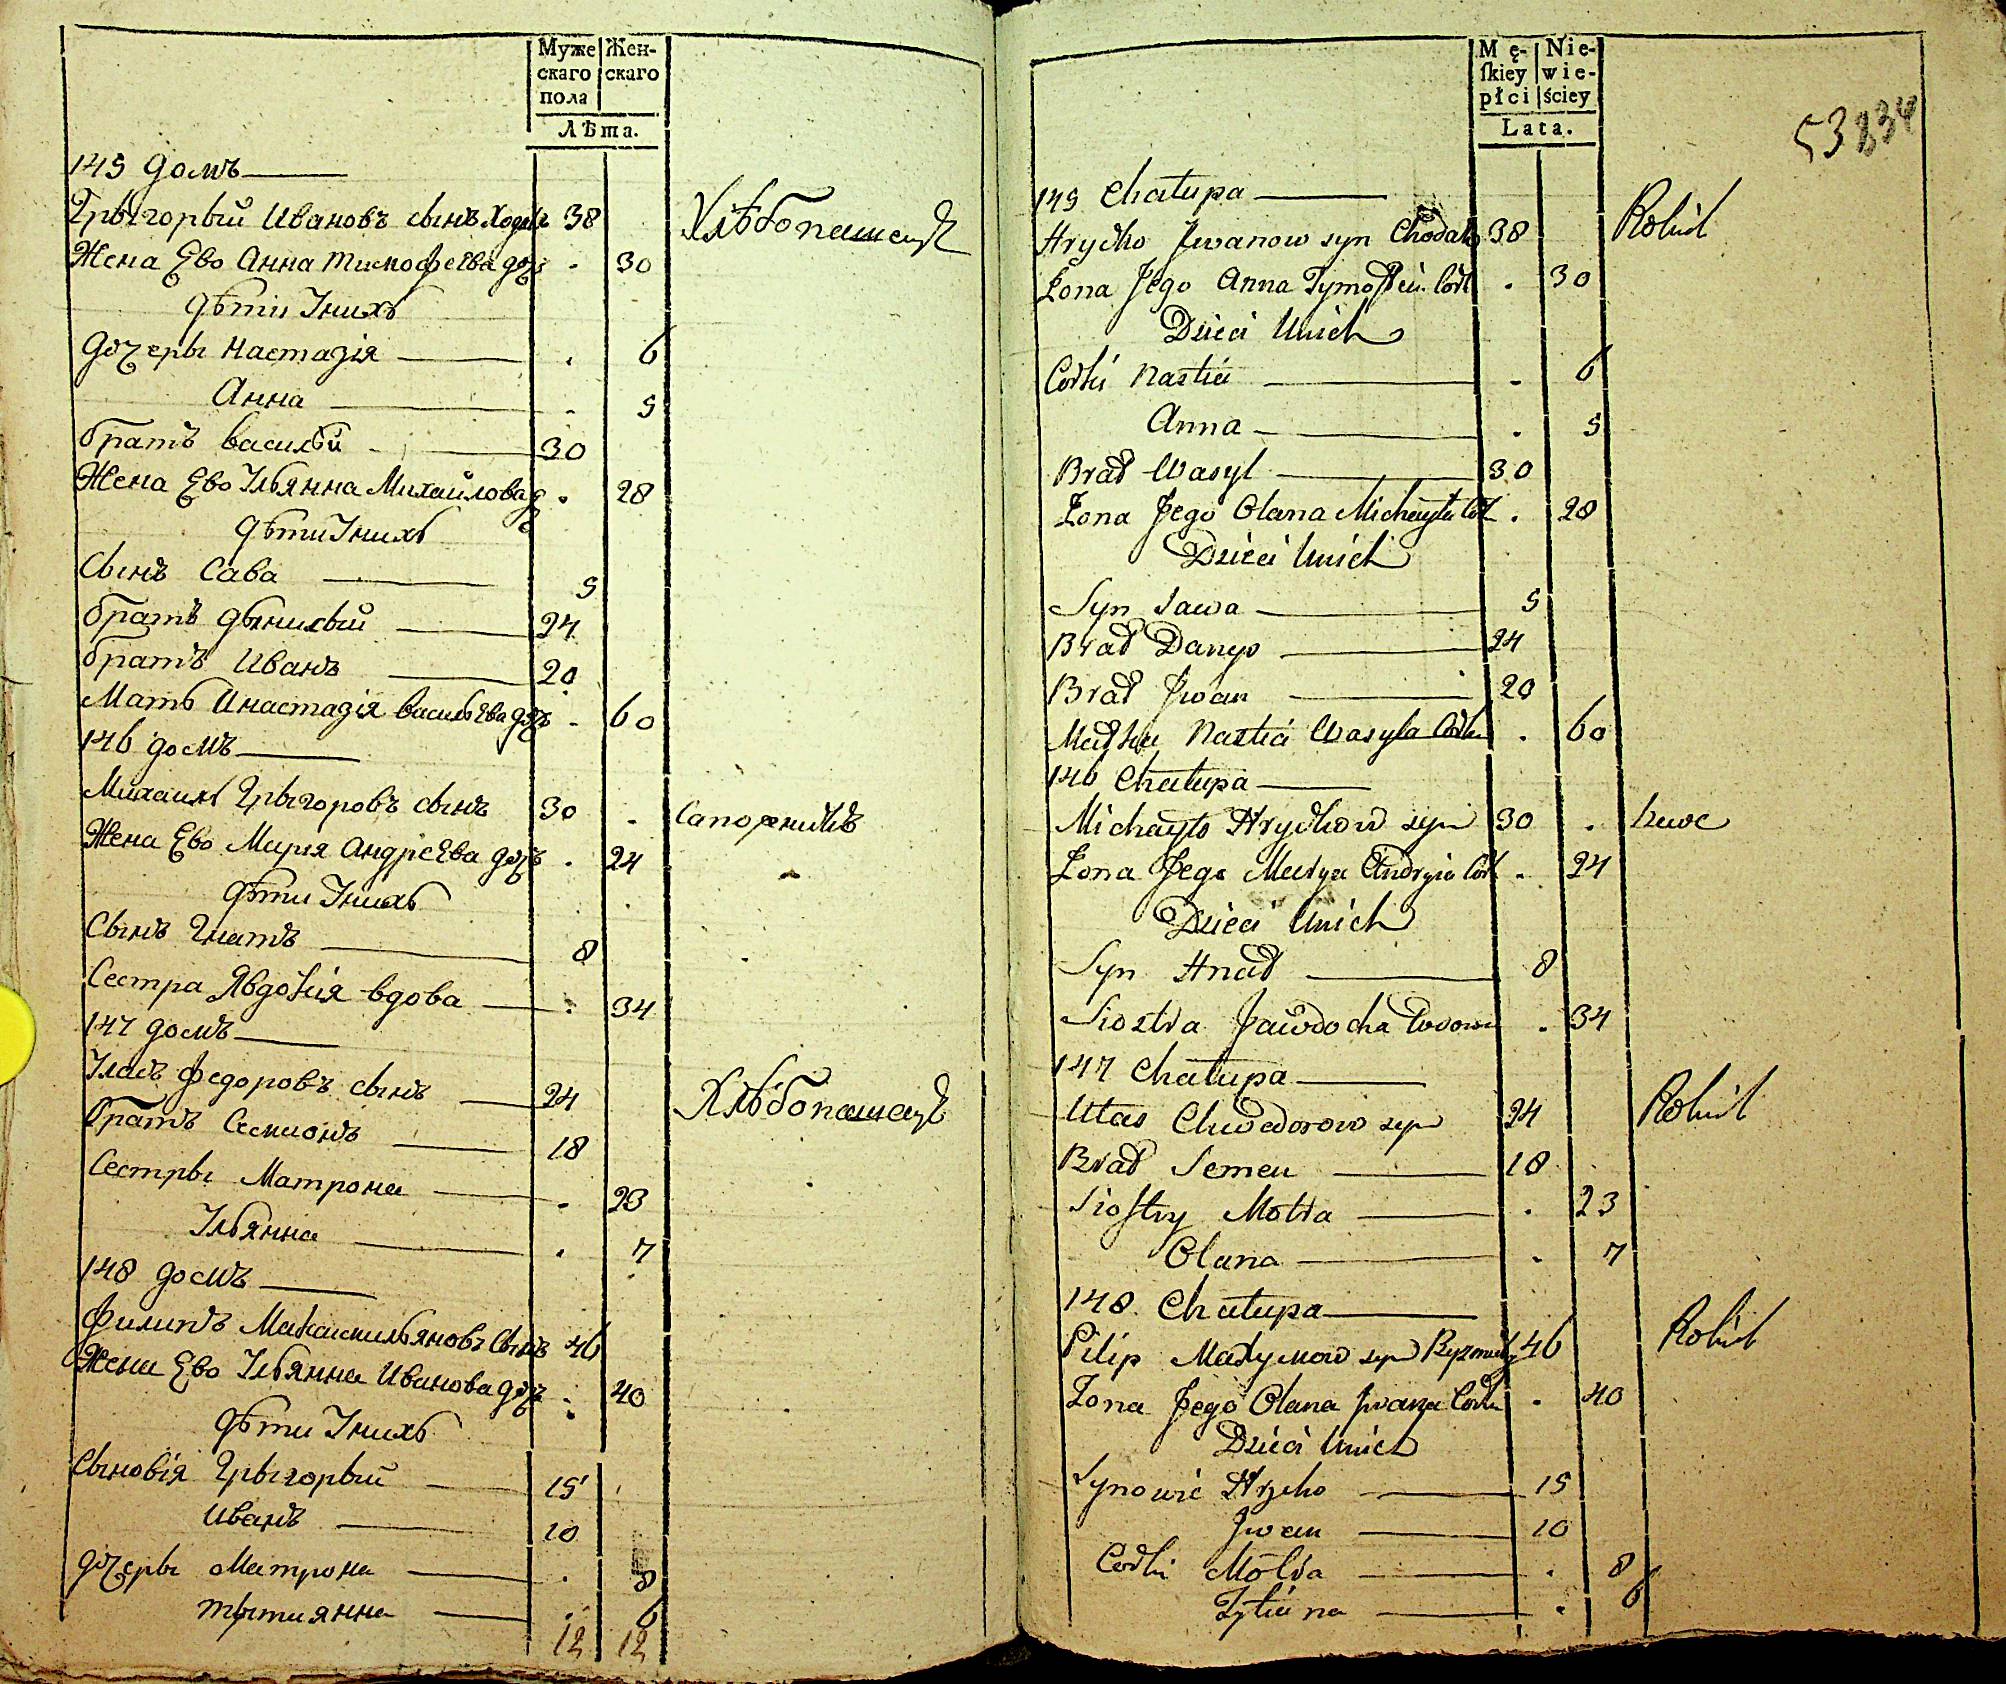 Муже Жен-
скаго скаго
пола
Лѣта.
145 домъ
Грыгорый Ивановъ сынъ Ходакъ 38 Хлѣбопашецъ
Жена Ево Анна Тимофеева доч . 30
Дѣти Їнихъ
дочеры Настазія . 6
Анна . 5
братъ василій 30
Жена Ево Їльянна Михайлова д . 28
Дѣти Їнихъ
Сынъ Сава 5
братъ Данилый 24
братъ Иванъ 20
Мать Инастазія васильева дочъ . 60
146 домъ
Михаилъ Грыгоровъ сынъ 30 . Сапожникъ
Жена Ево Мария Андреева дочъ . 24
Дѣти Їнихъ
Сынъ Гнатъ 8
Сестра Явдокія вдова . 34
147 домъ
Їласъ федоровъ сынъ 24 Хлѣбопашецъ
братъ Семионъ 18
Сестры Матрона . 23
Їльянна . 7
148 домъ
Филипъ Макасмильяновъ Сынъ 46
Жена Ево Їльянна Иванова дочъ . 40
Дѣти Їнихъ
Сыновія Грыгорый 15
Иванъ 10
дочеры Матрона . 8
Тытиянна . 6
12 12
Mę- Nie-
ſkiey wie-
płci ściey
Lata.
53 834
145 Chałupa
Hryćko Jwanow syn Chodak 38 Rolnik
Żona Jego Anna Tymofieia Cór . 30
Dzieci Unich
Corki Nastia . 6
Anna . 5
Brat Wasyl 30
Żona Jego Olana Michayła Cór . 28
Dzieci Unich
Syn Sawa 5
Brat Danyło 24
Brat Jwan 20
Matka Nastia Wasyla Corka . 60
146 Chałupa
Michayło Hryćkow syn 30 . Szewc
Żona Jego Marya Andryia Cór . 24
Dzieci Unich
Syn Hnat 8
Siostra Jawdocha Wdowa . 34
147 Chałupa
Ułas Chwedorow syn 24 Rolnik
Brat Semen 18
Sioſtry Motra . 23
Olana . 7
148 Chałupa
Pilip Maxymow syn 46 Rolnik
Żona Jego Olana Jwana Corka . 40
Dzieci Unich
Synowie Hryćko 15
Jwan 10
Corki Motra . 8
Tytiana . 6